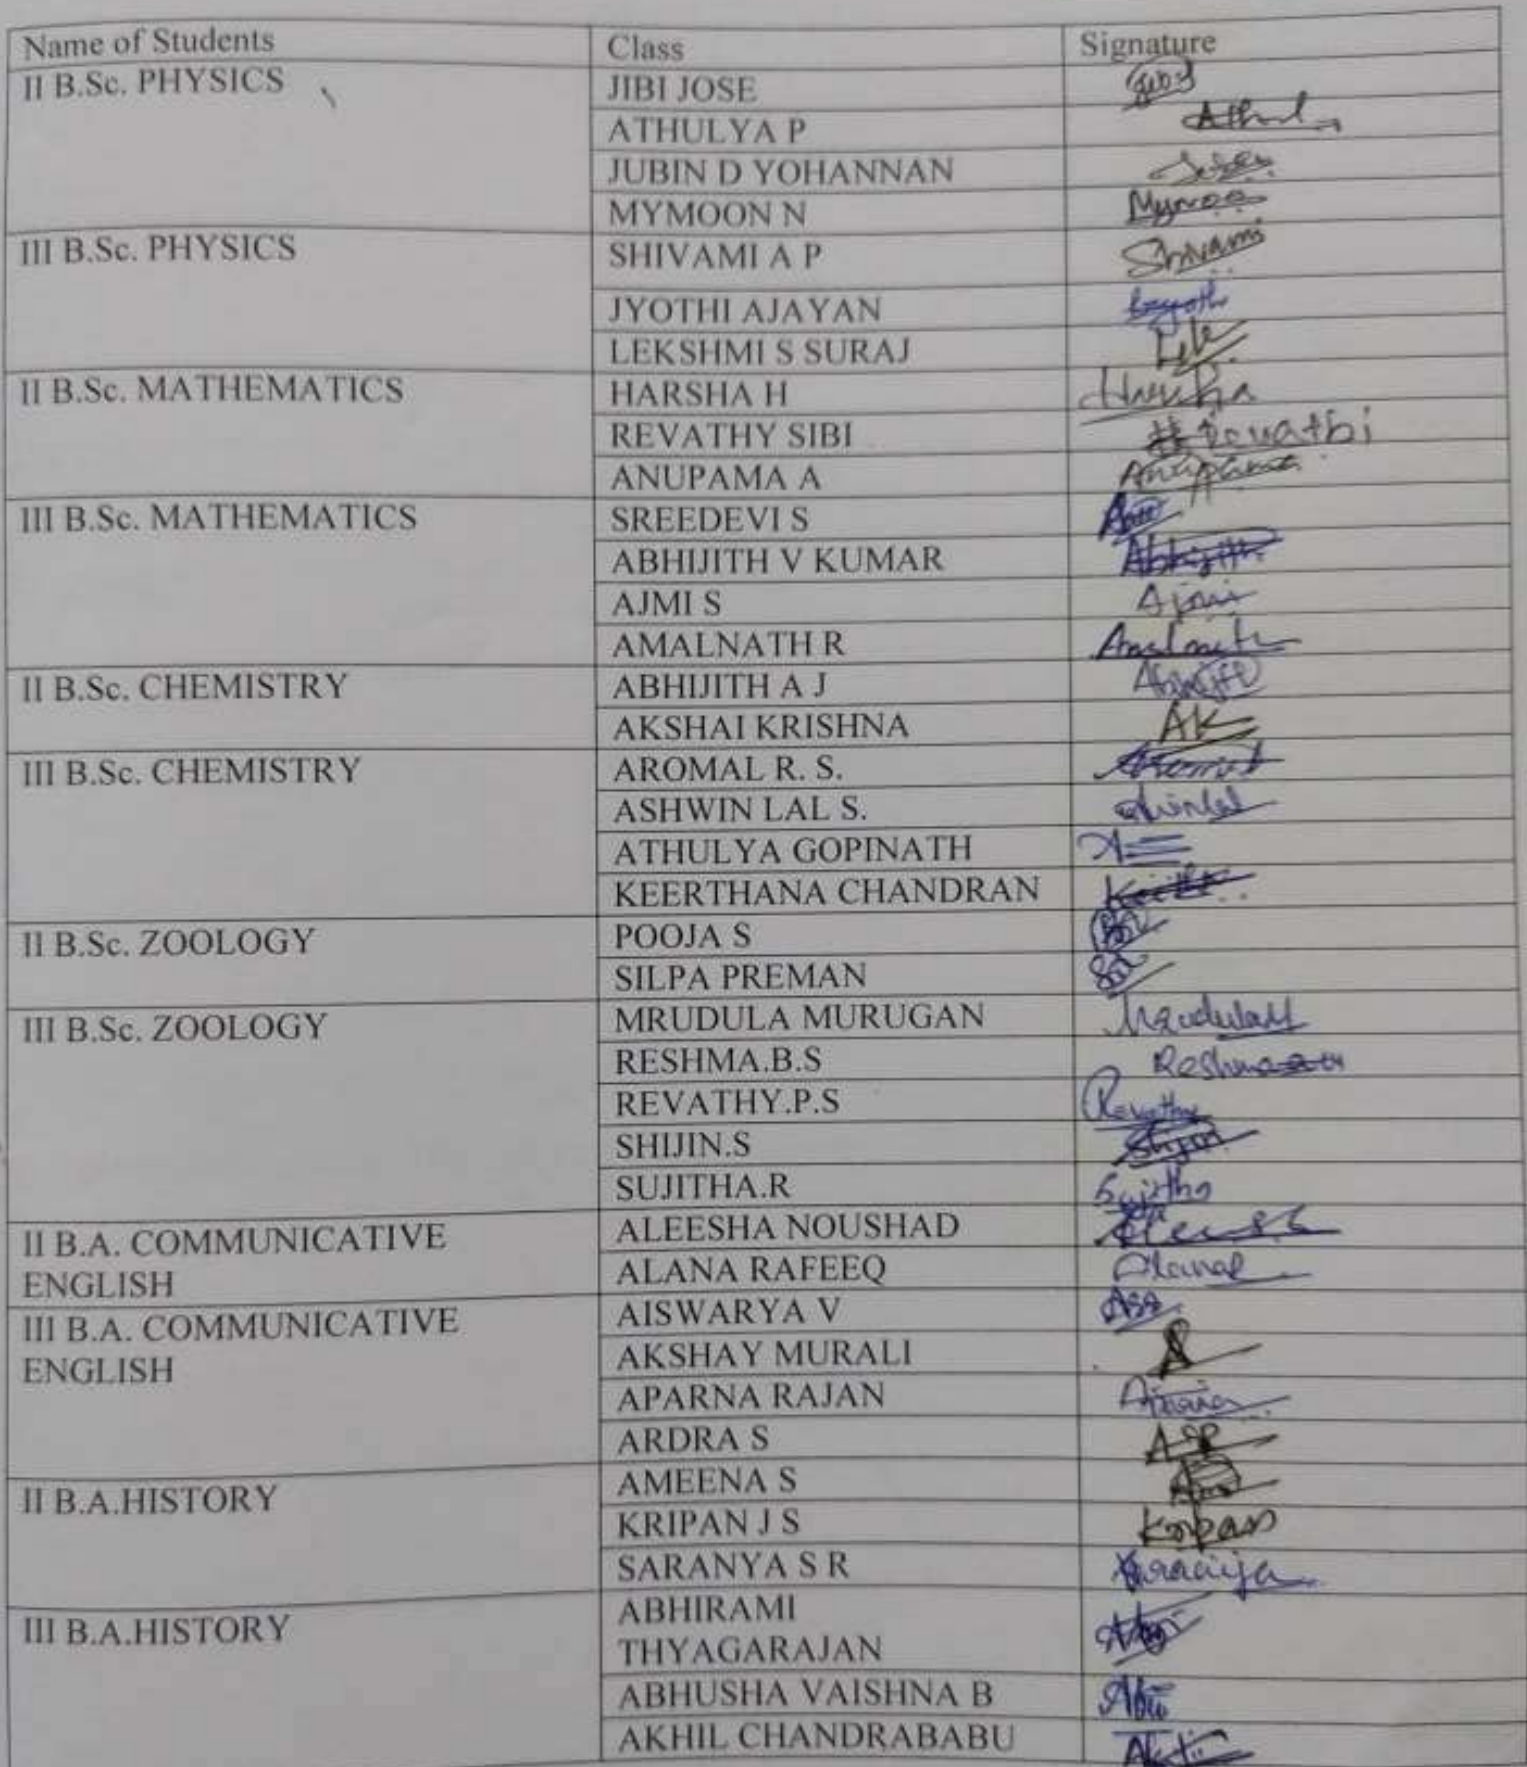 Name of Students Class Signature
II B.Sc. PHYSICS JIBI JOSE
ATHULYA P Athul
JUBIN D YOHANNAN
MYMOON N Mymoo
III B.Sc. PHYSICS SHIVAMI A P Shivami
JYOTHI AJAYAN
LEKSHMI S SURAJ
II B.Sc. MATHEMATICS HARSHA H Harsha
REVATHY SIBI Revathi
ANUPAMA A Anupama
III B.Sc. MATHEMATICS SREEDEVI S
ABHIJITH V KUMAR Abhijith
AJMI S Ajmi
AMALNATH R Amalnath
II B.Sc. CHEMISTRY ABHIJITH A J
AKSHAI KRISHNA AK
III B.Sc. CHEMISTRY AROMAL R. S. Aromal
ASHWIN LAL S.
ATHULYA GOPINATH
KEERTHANA CHANDRAN
II B.Sc. ZOOLOGY POOJA S
SILPA PREMAN
III B.Sc. ZOOLOGY MRUDULA MURUGAN
RESHMA.B.S
REVATHY.P.S Revathy
SHIJIN.S Shijin
SUJITHA.R Sujitha
II B.A. COMMUNICATIVE ALEESHA NOUSHAD
ENGLISH ALANA RAFEEQ
III B.A. COMMUNICATIVE AISWARYA V
ENGLISH AKSHAY MURALI
APARNA RAJAN
ARDRA S
II B.A.HISTORY AMEENA S
KRIPAN J S Kripan
SARANYA S R
III B.A.HISTORY ABHIRAMI
THYAGARAJAN
ABHUSHA VAISHNA B
AKHIL CHANDRABABU